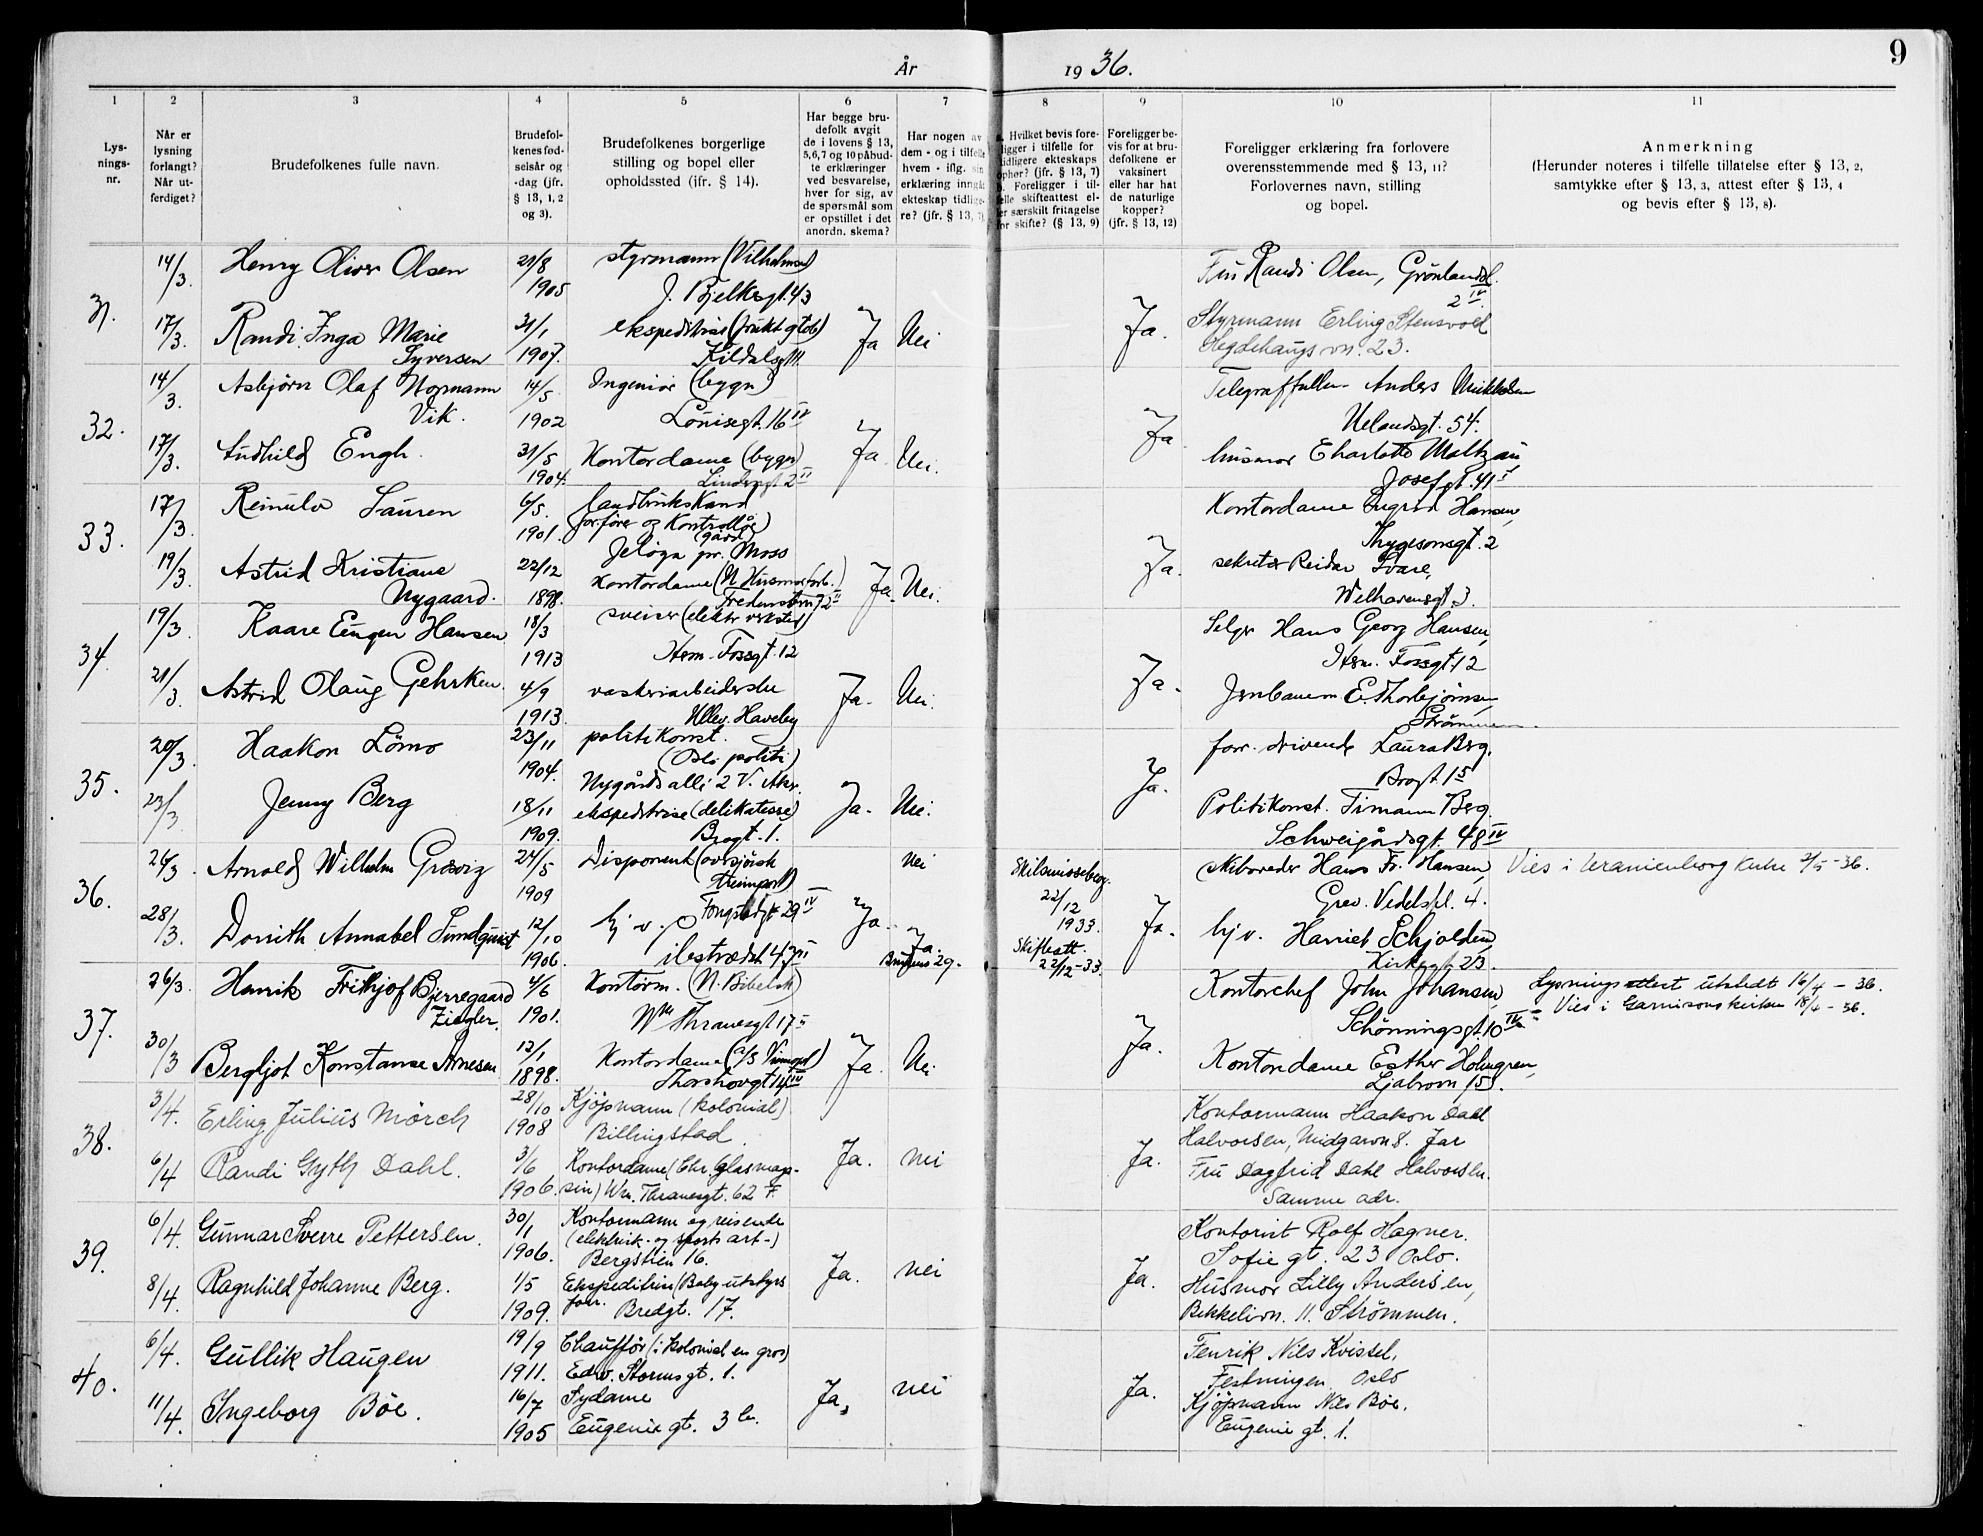 År 1936.
9
1 2 3 4 5 6 7 8 9 10 11
Lys-
nings-
nr.
Når er
lysning
forlangt?
Når ut-
ferdiget?
Brudefolkenes fulle navn.
Brudefol-
kenes fød-
selsår og
-dag (jfr.
§ 13, 1, 2
og 3).
Brudefolkenes borgerlige
stilling og bopel eller
opholdssted (jfr. § 14).
Har begge bru-
defolk avgit
de i lovens § 13,
5, 6, 7 og 10 påbud-
te erklæringer
ved besvarelse,
hver for sig, av
de spørsmål som
er opstillet i det
anordn. skema?
Har nogen av
dem - og i tilfelle
hvem - iflg. sin
erklæring inngåt
ekteskap tidlige-
re? (jfr. § 13, 7)
a. Hvilket bevis fore-
ligger i tilfelle for
tidligere ekteskaps
ophør? (jfr. § 13, 7)
b. Foreligger i til-
felle skifteattest el-
ler særskilt fritagelse
for skifte? (§ 13, 9)
Foreligger be-
vis for at bru-
defolkene er
vaksinert
eller har hat
de naturlige
kopper?
(jfr. § 13, 12)
Foreligger erklæring fra forlovere
overensstemmende med § 13, 11?
Forlovernes navn, stilling
og bopel.
Anmerkning
(Herunder noteres i tilfelle tillatelse efter § 13, 2,
samtykke efter § 13, 3, attest efter § 13, 4
og bevis efter § 13, 8).
14/3. Henry Oliver Olsen 21/8 1905 styrmann (Vilhelmsen)
J. Bjelkesgt. 43
Fru Randi Olsen, Grønlandsl.
2 IV.
31. 17/3. Randi Inga Marie
Syversen 31/1 1907. ekspeditrise (frukt gtob)
Kildalsgt 11 Ja Nei Ja.
Styrmann Erling Stensvold
Hegdehaugsvn. 23.
14/3. Asbjørn Olaf Normann
Vik. 14/5 1902 Ingeniør (bygn)
Louisegt. 16 IV
Anders Mikkelsen
Uelandsgt. 54.
32. 17/3. Engh. 31/5 1904. Kontordame (bygn)
2 II Ja. Nei. Ja
husmor Charlotte Maltzau
Josefgt. 41 I
17/3. Reinulv Lauren 6/5. 1901. landbrukskand
og Kontrollør
(gård)
Jeløya pr. Moss
Kontordame Ingrid Hansen,
Thygesonsgt. 2
33. 19/3. Astrid Kristiane
Nygaard. 22/12 1898. Kontordame (N. Husmorforb.)
2 II Ja. Nei. Ja.
sekretær Reidar Svare,
Welhavensgt 3.
19/3. Kaare Eugen Hansen 18/3 1913 sveiser (elektr verksted)
Herm. Fossgt. 12
Selger Hans Georg Hansen,
Herm. Fossgt. 12
34. 21/3. Astrid Olaug Gehrken. 4/9 1913. vaskeriarbeiderske
Ullev. Haveby Ja. Nei. Ja.
Jernbanem E. Thorbjørnsen
Strømmen.
20/3. Haakon Lömo 23/11 1904. politikonst.
(Oslo politi)
Nygårds alle 2 V. Aker.
forr. drivende Laura Berg.
Brogt 15
35. 23/3 Jenny Berg 18/11 1909. ekspeditrise (delikatesse)
Brogt. 1. Ja. Nei. Ja.
Politikonst. Timann Berg.
Schweigårdsgt. 48 IV
26/3. Arnold Wilhelm Græsvig 24/5 1909 Disponent (oversjøisk
treimport)
29 IV
Nei Skilsmissebev.
22/12
1933.
skibsreder Hans Fr. Hansen,
Grev. Vedelspl. 4.
Vies i Uranienborg kirke 2/5-36.
36. 28/3. Dorrith Annabel Sundquist 12/10 1906. hj. v.
47 III Ja. Ja.
29. Skifteatt.
22/12-33. Ja.
hj v. Harriet Schjolden,
Kirkegt 23.
26/3. Henrik Frithjof Bjerregaard
Ziegler. 4/6 1901. Kontorm. (N. Bibelsk)
Wm Thranesgt 17
Kontorchef John Johansen,
Schönningsgt. 10 IV
Lysningsattest utstedt 16/4-36.
Vies i Garnisonskirken 18/4-36.
37. 30/3 Bergljot Konstanse Arnesen 12/1 1898. Kontordame (A/S Vinmonopol)
Thorshovgt 14 IV Ja. Nei Ja.
Kontordame Esther Holmgren,
Ljabrovn 15.
3/4. Erling Julius Mörch 28/10 1908 Kjöpmann (kolonial)
Billingstad.
Kontormann Haakon Dahl
Halvorsen, Midgarvn 8. Jar
38. 6/4 Randi Gyth Dahl. 3/6 1906. Kontordame (Chr. Glasmaga-
sin) Wm. Thranesgt. 62 F. Ja. nei Ja.
Fru Dagfrid Dahl Halvorsen.
Samme adr.
6/4. Gunnar Sverre Pettersen. 30/1 1906. Kontormann og reisende
(elektrisk- og sports art-)
Bergstien 16.
Kontorist Rolf Hagner.
Sofie gt. 23 Oslo.
39. 8/4. Ragnhild Johanne Berg. 1/5 1909. Ekspeditrise (Babyutstyrs
forr. Bredgt. 17. Ja. nei Ja.
Husmor Lilly Andersen,
Bekkelivn. 11. Strömmen.
6/4. Gullik Haugen 19/9 1911. Chaufför (i kolonial en gros)
Edv. Stormsgt. 1.
Fenrik Nils Kvissel,
Festningen Oslo
40. 11/4. Ingeborg Böe. 16/7 1905 Sydame
Eugenie gt. 3 b. Ja, nei Ja.
Kjöpmann Nils Böe.
Eugenie gt. 1.